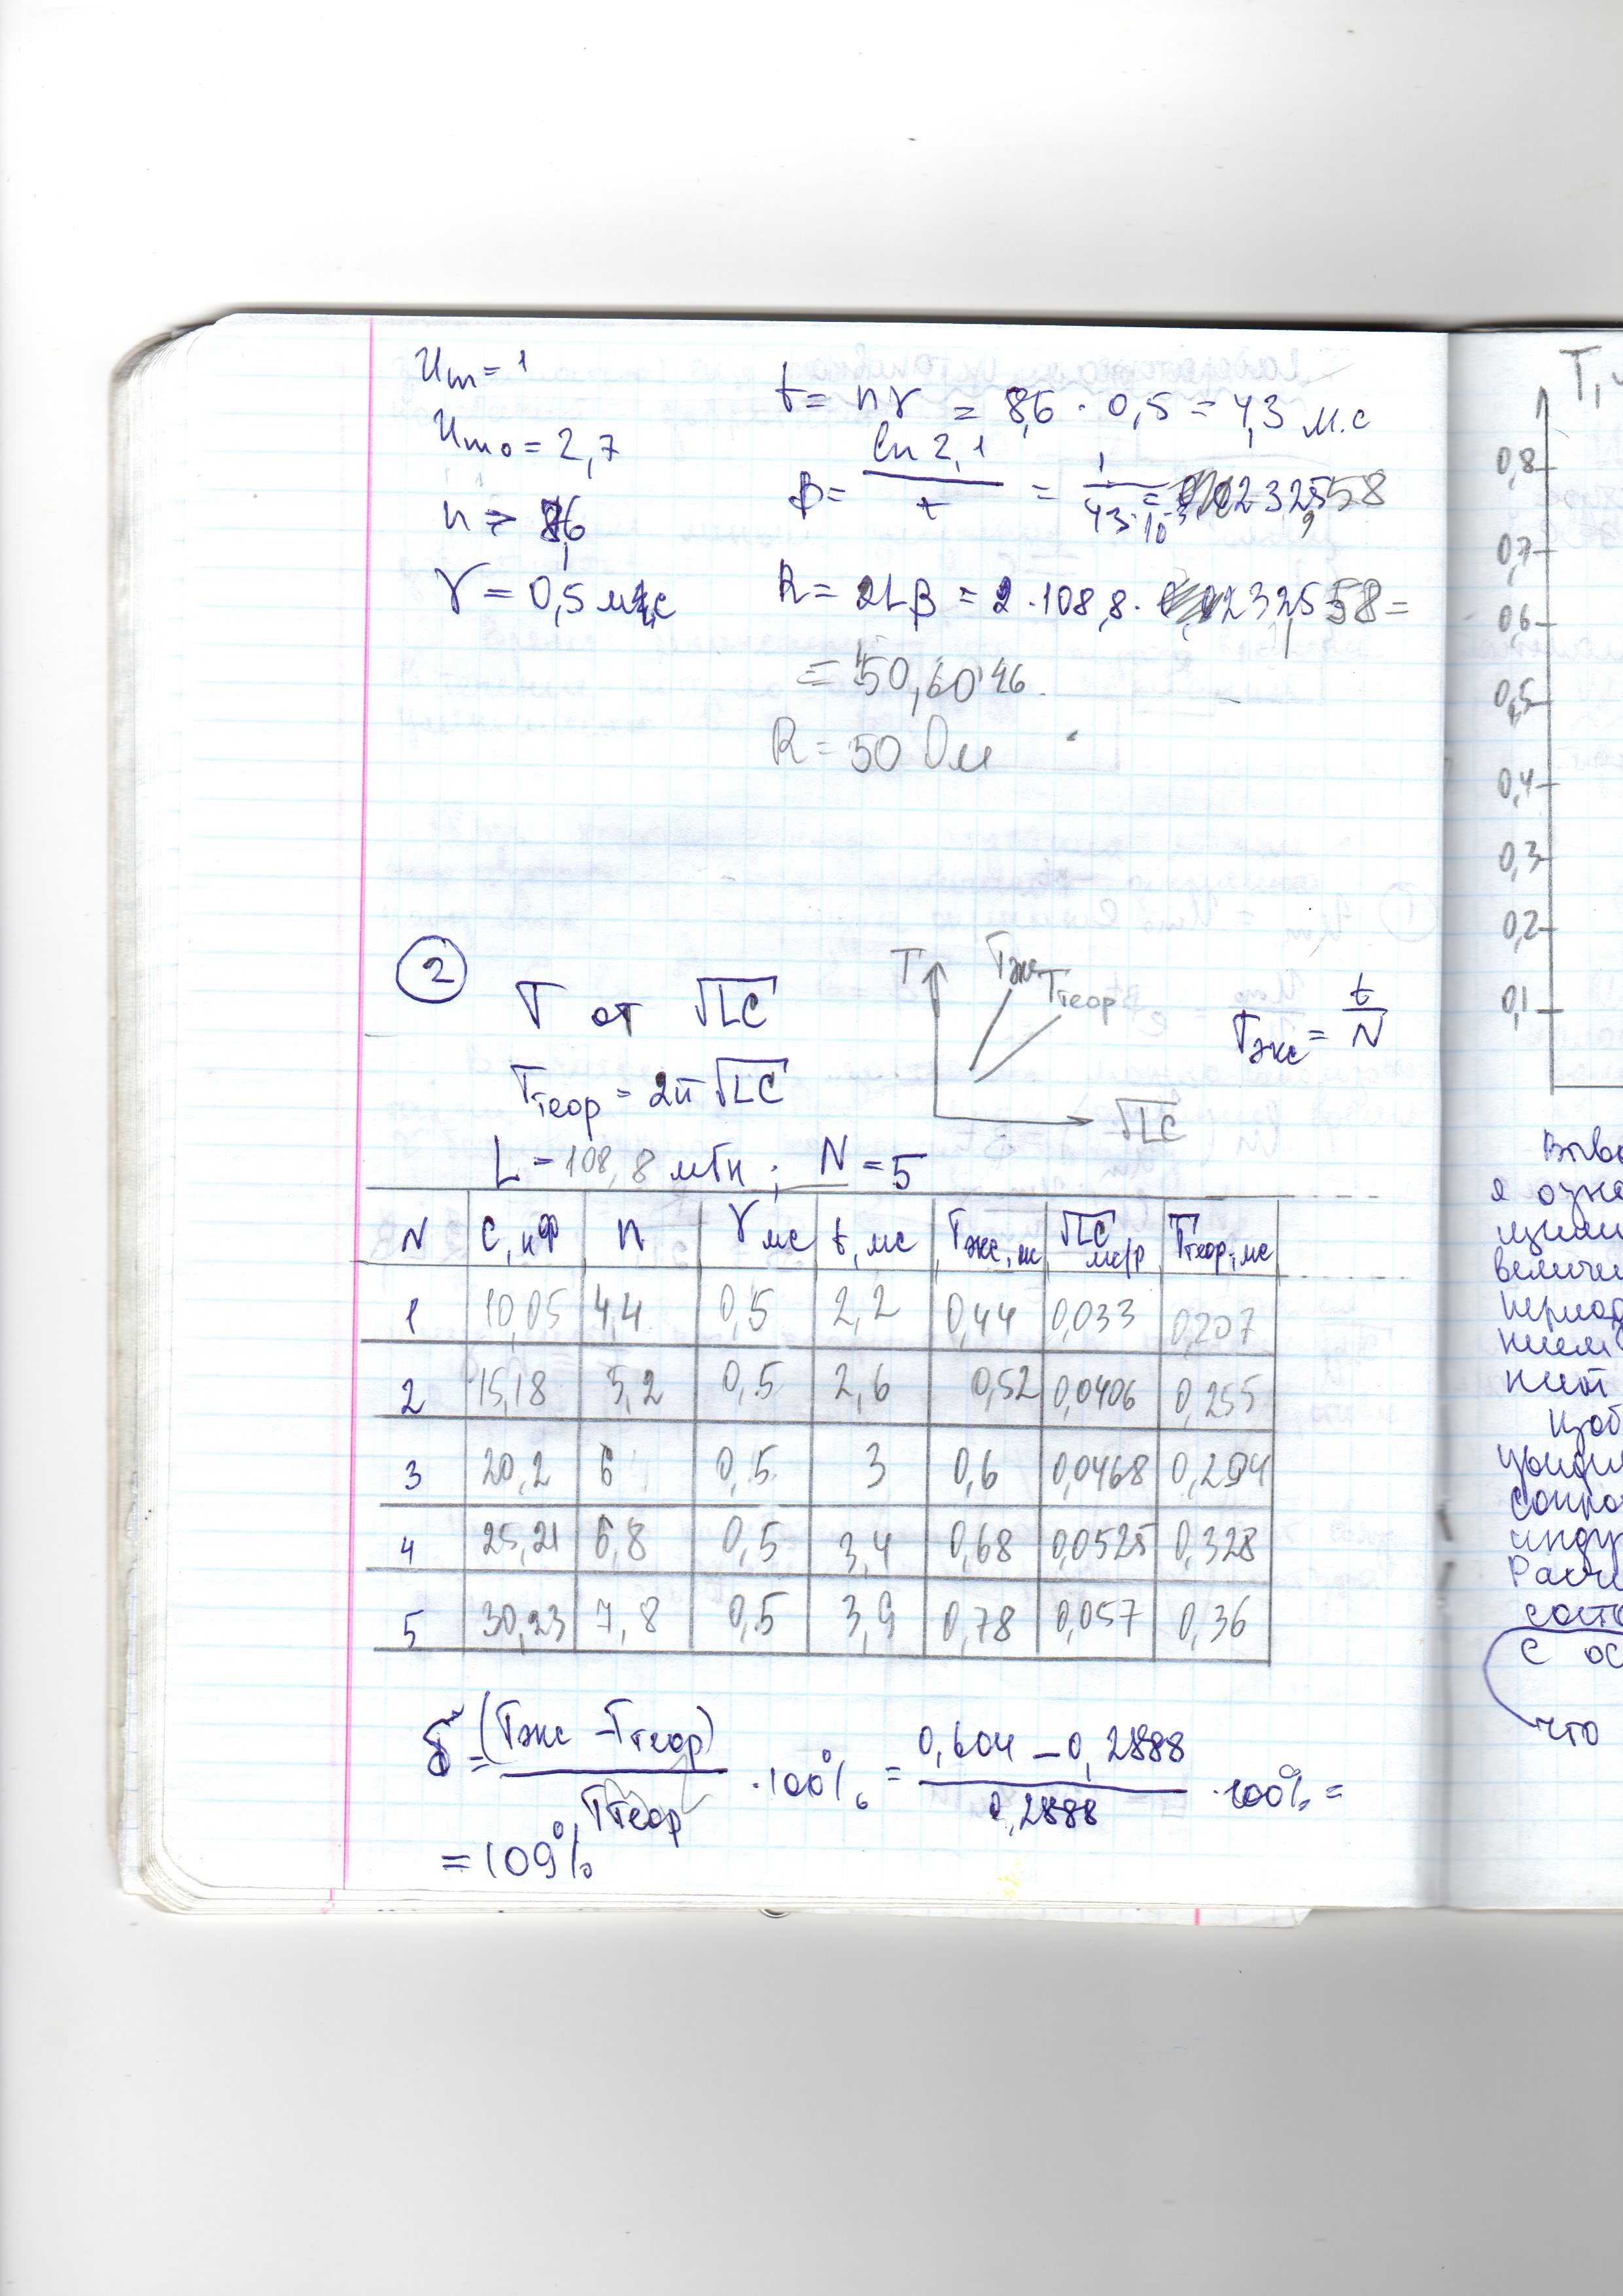 Um = 1
Umo = 2,7
n = 8,6
γ = 0,5 мс
t = nγ = 8,6 · 0,5 = 4,3 м.с
β = ln 2,1 / t = 1 / 4,3·10⁻³ = 232,558
R = 2Lβ = 2 · 108,8 · 232,558 =
= 50,6046
R = 50 Ом
2
T от √LC
Tтеор = 2π√LC
T Tэкс Tтеор √LC
Tэкс = t / N
L = 108,8 мГн ; N = 5
N C, нФ n γ мс t, мс Tэкс, мс √LC Tтеор, мс
1 10,05 4,4 0,5 2,2 0,44 0,033 0,207
2 15,18 5,2 0,5 2,6 0,52 0,0406 0,255
3 20,2 6 0,5 3 0,6 0,0468 0,294
4 25,21 6,8 0,5 3,4 0,68 0,0525 0,328
5 30,23 7,8 0,5 3,9 0,78 0,057 0,36
δ = (Tэкс – Tтеор) / Tтеор · 100% = 0,604 – 0,2888 / 0,2888 · 100% =
= 109%
T,
0,8
0,7
0,6
0,5
0,4
0,3
0,2
0,1
Выво
я озна
величи
период
нием
ний
сопро
инду
Расч
сост
с ос
что